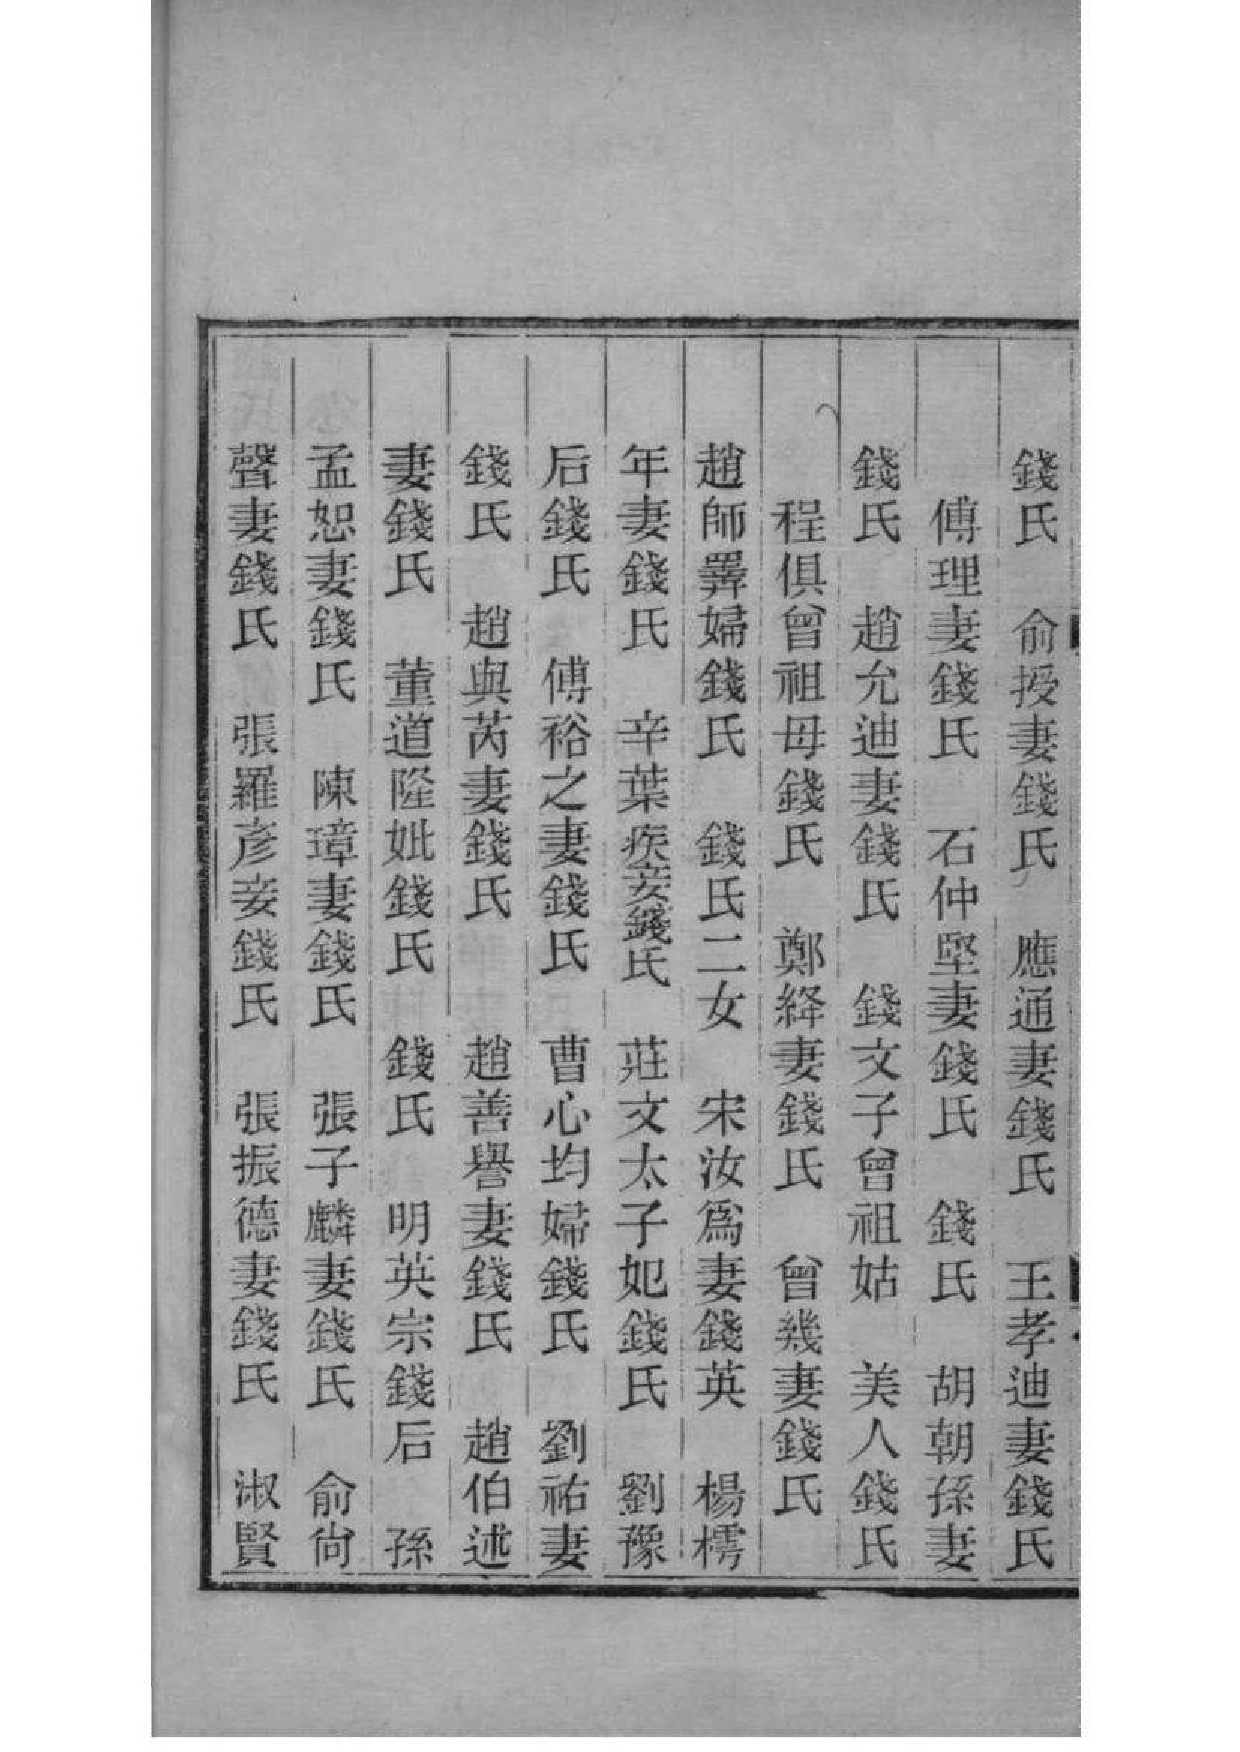 錢氏　俞授妻錢氏　應通妻錢氏　王孝迪妻錢氏
傅理妻錢氏　石仲堅妻錢氏　錢氏　胡朝孫妻
錢氏　趙允迪妻錢氏　錢文子曾祖姑　美人錢氏
程俱曾祖母錢氏　鄭絳妻錢氏　曾幾妻錢氏
趙師羼婦錢氏　錢氏二女　宋汝爲妻錢英　楊樗
年妻錢氏　辛葉疾妾錢氏　莊文太子妃錢氏　劉豫
后錢氏　傅裕之妻錢氏　曹心均婦錢氏　劉祐妻
錢氏　趙與芮妻錢氏　趙善譽妻錢氏　趙伯述
妻錢氏　董道隆妣錢氏　錢氏　明英宗錢后　孫
孟恕妻錢氏　陳璋妻錢氏　張子麟妻錢氏　俞尙
聲妻錢氏　張羅彥妾錢氏　張振德妻錢氏　淑賢